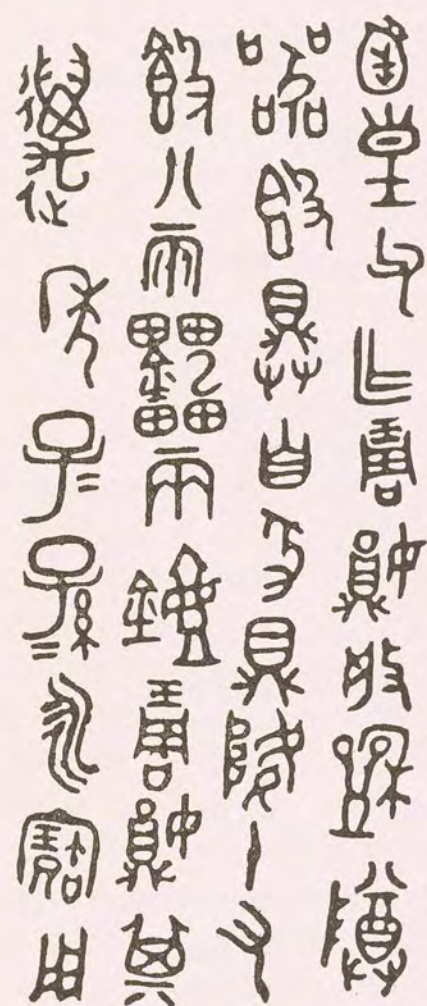 函皇父乍琱妘般盉尊
器𣪘具自豕鼎降十又
𣪘八兩罍兩壺琱妘其
萬年子=孫=永寶用